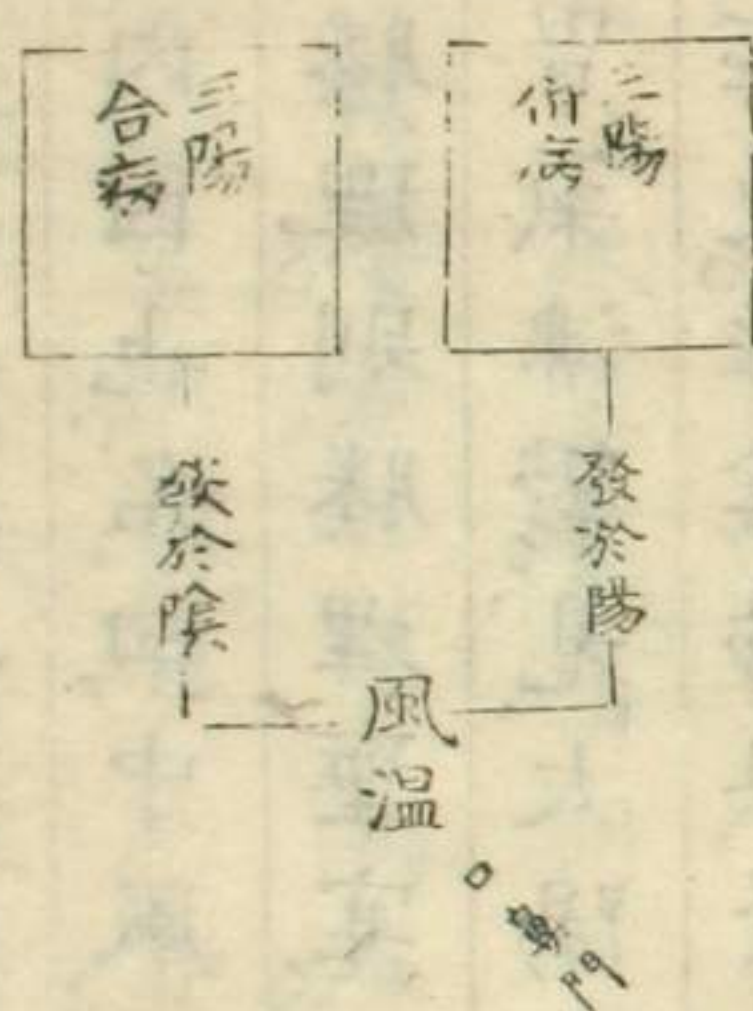 二陽
併病
三陽
合病
發於陽
發於陰
風温
口鼻門